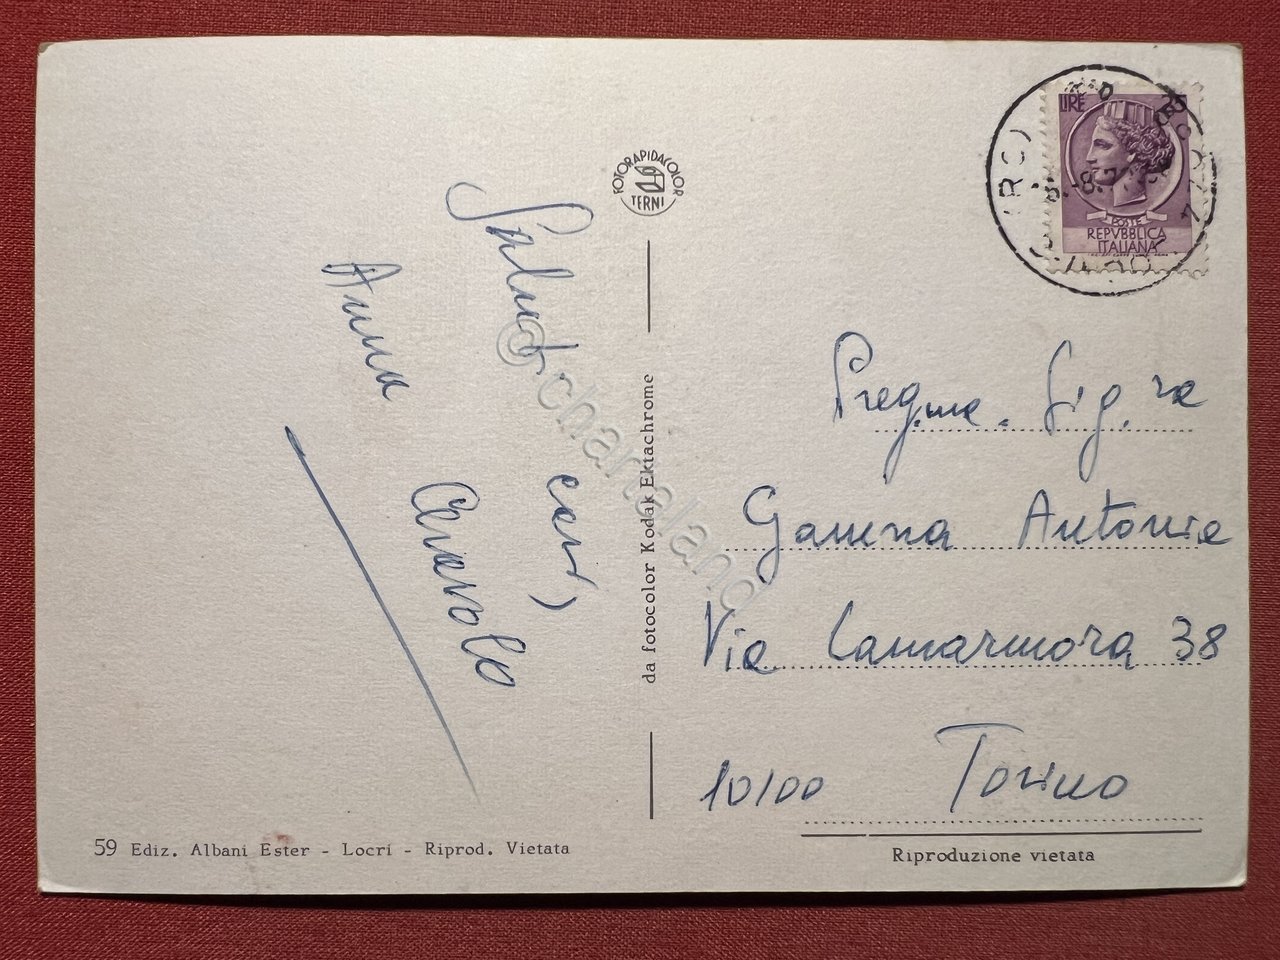 Saluti cari
Anna Ciaravolo
FOTORAPIDACOLOR
TERNI
da fotocolor Kodak Ektachrome
LIRE 25
POSTE
REPVBBLICA
ITALIANA
(RC)
Preg.ma. Sig.ra
Gamna Antonia
Via Lamarmora 38
10100 Torino
59 Ediz. Albani Ester - Locri - Riprod. Vietata
Riproduzione vietata
© chartaland